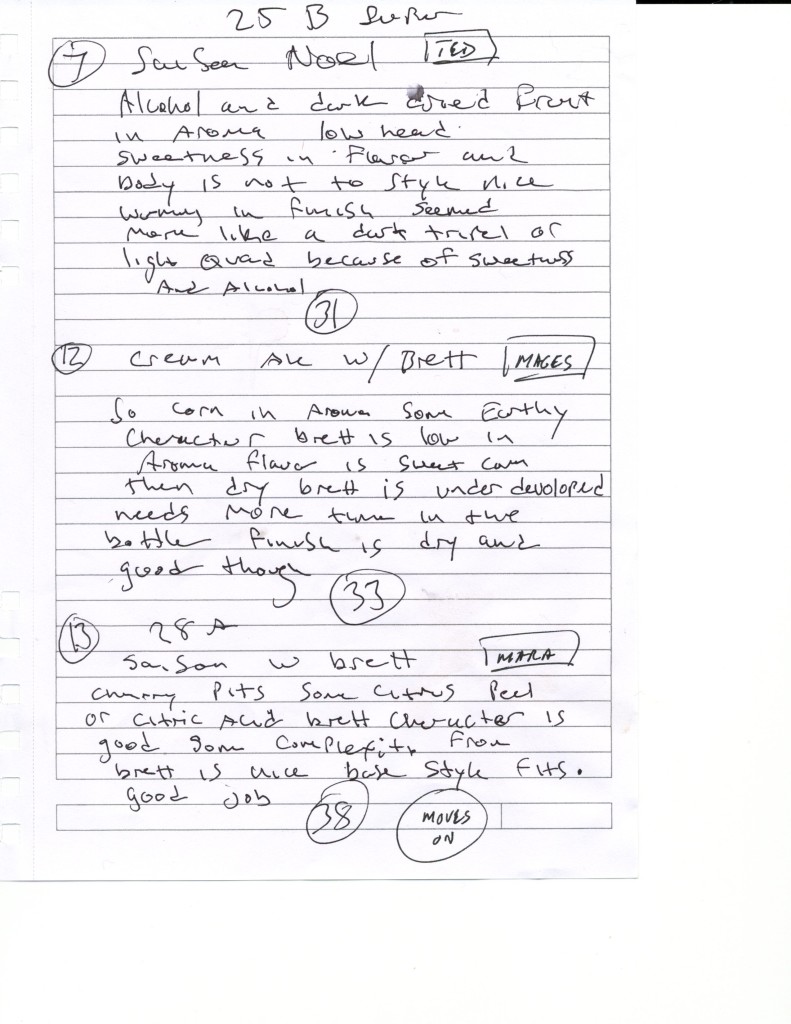 25 B Super
7 Saison Noel TED
Alcohol and dark dried Fruit
in Aroma low head
sweetness in Flavor and
body is not to style nice
warming in finish seemed
more like a dark tripel or
light Quad because of sweetness
And Alcohol
31
12 Cream Ale w/ Brett MAGES
So corn in Aroma Some Earthy
Character brett is low in
Aroma flavor is sweet corn
then dry brett is under devoloped
needs more time in the
bottle finish is dry and
good though
33
13 28 A
Saison w brett MARA
cherry Pits Some Citrus Peel
or Citric Acid brett Character is
good Some Complexity From
brett is nice base Style Fits.
good job
38 MOVES
ON